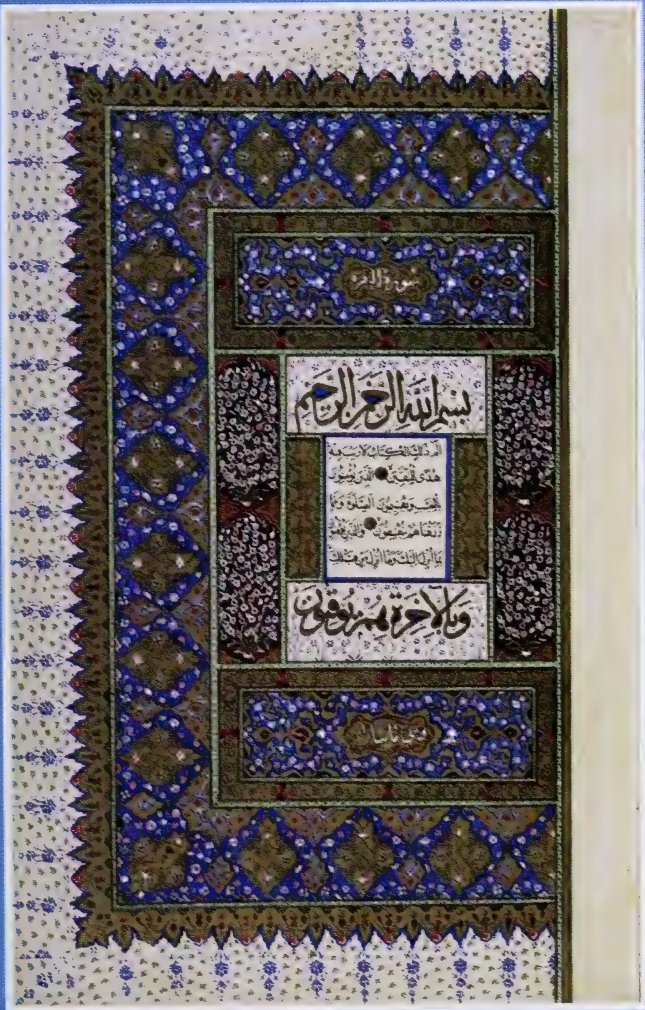 سورة البقره
بسم الله الرحمن الرحيم
الم ذلك الكتاب لا ريب فيه
هدى للمتقين الذين يؤمنون
بالغيب ويقيمون الصلوة ومما
رزقناهم ينفقون والذين يؤمنون
بما أنزل إليك وما أنزل من قبلك
وبالاخرة هم يوقنون